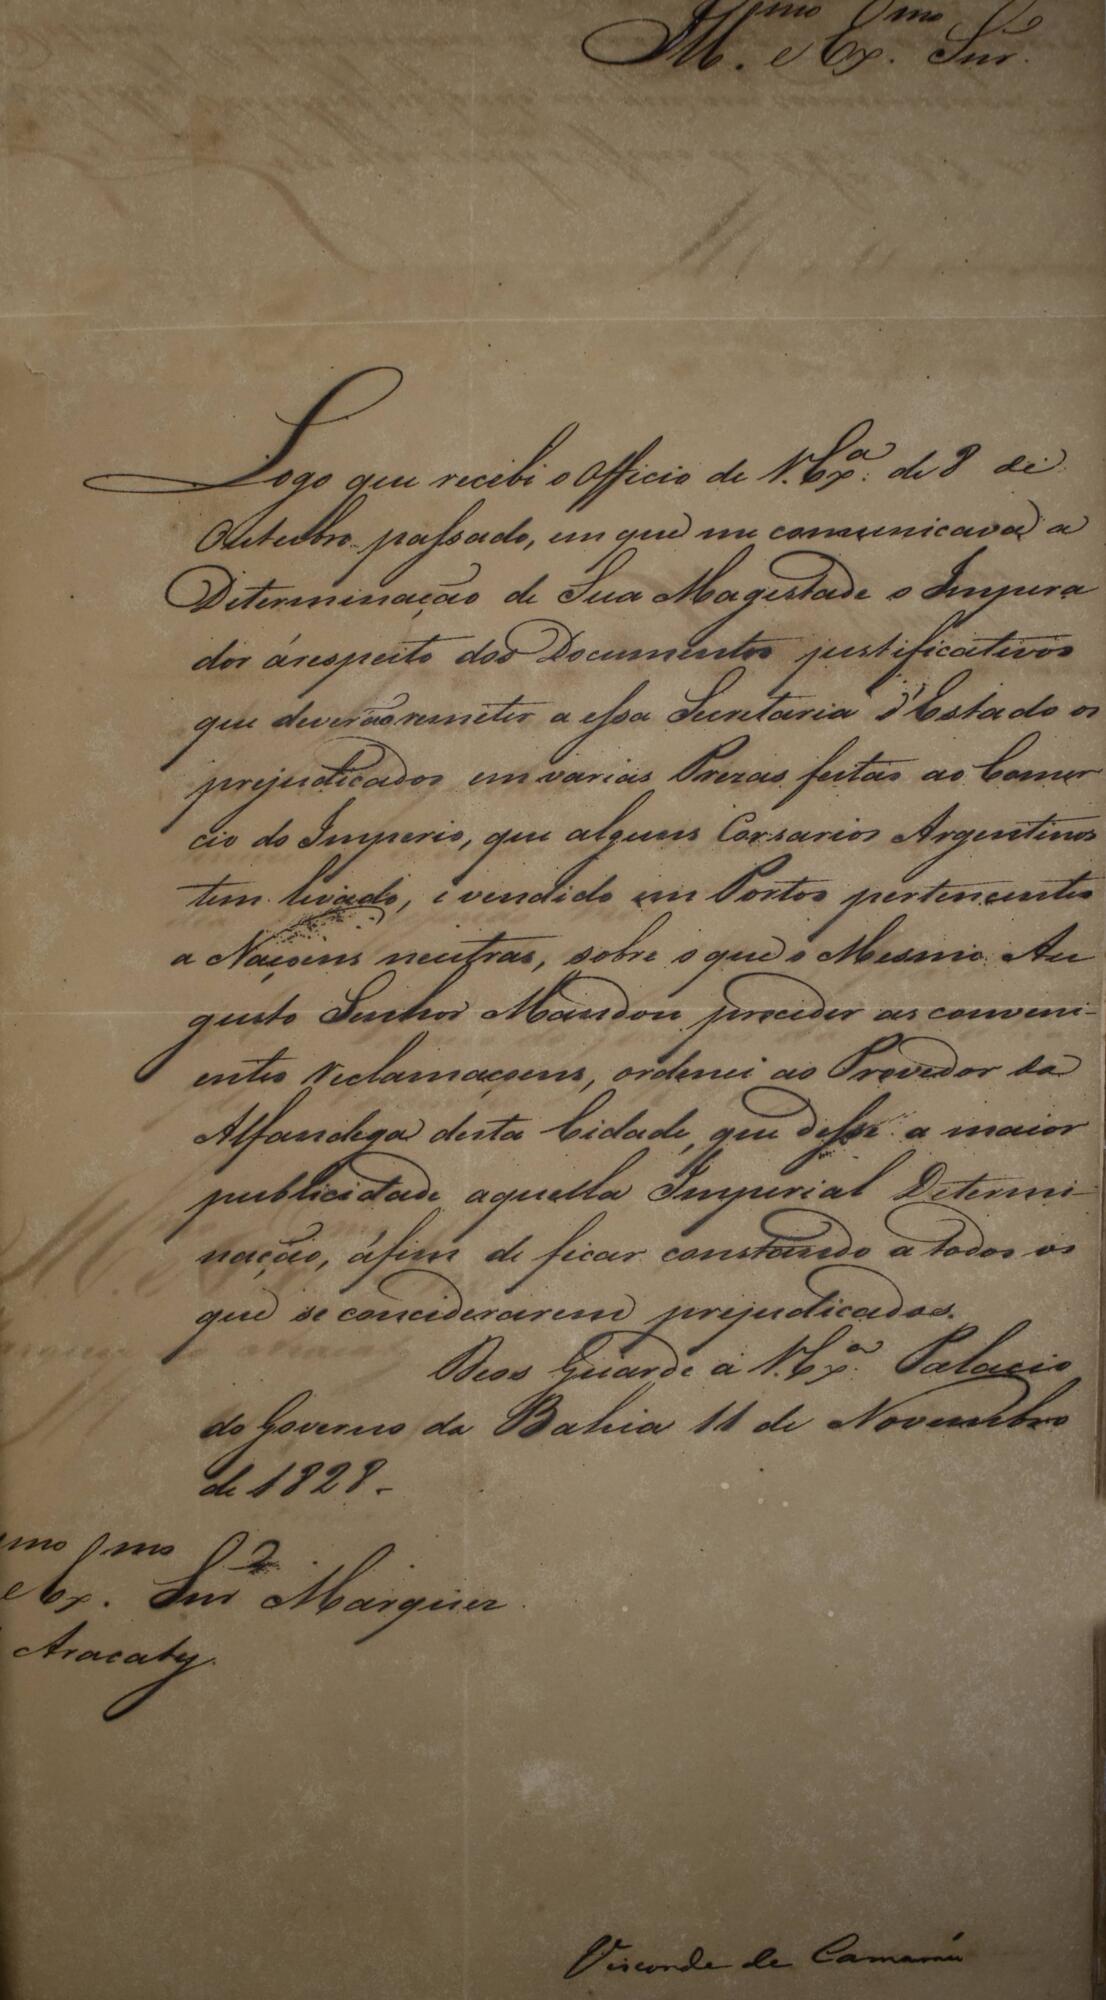 Ill.mo e Ex.mo Snr.
Logo que recebi o Officio de V. Ex.ª de 8 de
Outubro passado, em que me comunicava a
Determinação de Sua Magestade o Impera
dor árespeito dos Documentos justificativos
que deverão remeter a essa Secretaria d'Estado os
prejudicados em varias Prezas feitas ao Comer
cio do Imperio, que alguns Corsarios Argentinos
tem levado, e vendido em Portos pertencentes
a Naçoens neutras, sobre o que o Mesmo Au
gusto Senhor Mandou proceder as conveni-
entes reclamaçoens, ordenei ao Provedor da
Alfandega desta Cidade, que desse a maior
publicidade aquella Imperial Determi-
nação, áfim de ficar constando a todos os
que se conciderarem prejudicados.
Deos Guarde a V. Ex.ª Palacio
do Governo da Bahia 11 de Novembro
de 1828.
mo e Ex.mo Snr Marquez
Aracaty
Visconde de Camamú